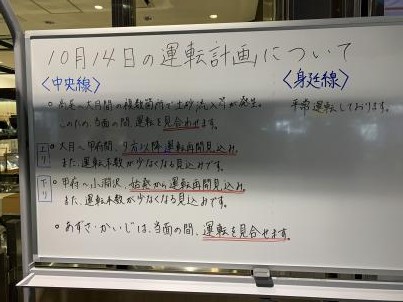 10月14日の運転計画について
〈中央線〉
〈身延線〉
。高尾〜大月間の複数箇所で土砂流入等が発生。
このため、当面の間、運転を見合わせます。
平常運転しております。
上り
。大月〜甲府間、夕方以降運転再開見込み。
また、運転本数が少なくなる見込みです。
下り
。甲府〜小淵沢、始発から運転再開見込み。
また、運転本数が少なくなる見込みです。
。あずさ・かいじは、当面の間、運転を見合せます。